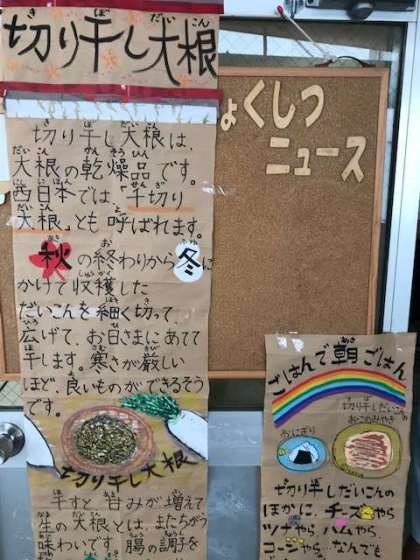 切り干し大根
切り干し大根は、
大根の乾燥品です。
西日本では、「千切り
大根」とも呼ばれます。
秋の終わりから冬に
かけて収穫した
だいこんを細く切って、
広げて、お日さまにあてて
干します。寒さが厳しい
ほど、良いものができるそう
です。
切り干し大根
干すと甘みが増えて
生の大根とは、またちがう
味わいです。腸の調子を
ょくしつ
ニュース
ごはんで朝ごはん
切り干しだいこんの
おこのみやき
おにぎり
切り干しだいこんの
ほかに、チーズやら
ツナやら、ハムやら
コーンやら、なんでも